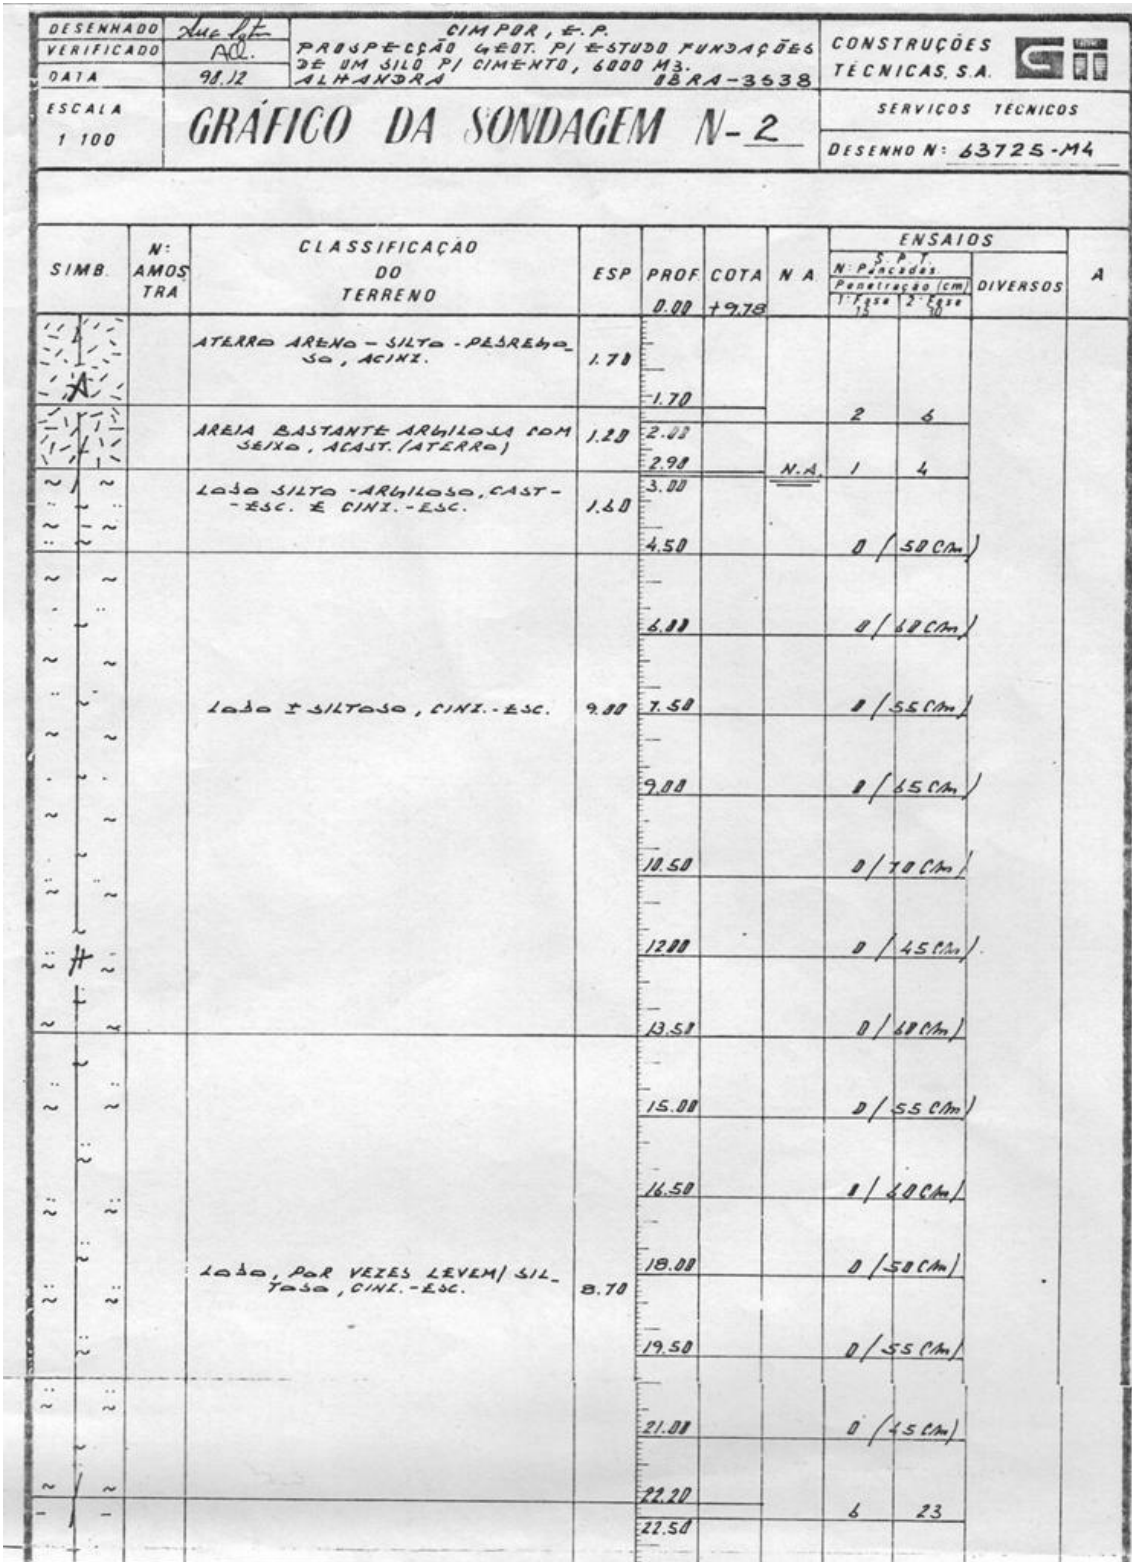 DESENHADO
VERIFICADO
DATA 90.12
CIMPOR, E.P.
PROSPECÇÃO GEOT. P/ ESTUDO FUNDAÇÕES
DE UM SILO P/ CIMENTO, 6000 M3.
ALHANDRA OBRA-3638
CONSTRUÇÕES
TÉCNICAS, S.A.
ESCALA
1 100
GRÁFICO DA SONDAGEM N- 2
SERVIÇOS TÉCNICOS
DESENHO N: 63725-M4
SIMB.
Nº
AMOS
TRA
CLASSIFICAÇÃO
DO
TERRENO
ESP
PROF.
0.00
COTA
+9.78
N A
ENSAIOS
S.P.T.
N: Pancadas
Penetração (cm)
1ª Fase 2ª Fase
15 30
DIVERSOS
A
A
ATERRO ARENO - SILTO - PEDREGO_
SO, ACINZ.
1.70
1.70
2 6
AREIA BASTANTE ARGILOSA COM
SEIXO, ACAST. (ATERRO)
1.20
2.00
2.90
N.A.
1 4
3.00
LODO SILTO - ARGILOSO, CAST-
-ESC. E CINZ.-ESC.
1.60
4.50
0 / 50 cm)
6.00
0 / 60 cm)
LODO ± SILTOSO, CINZ.-ESC.
9.00
7.50
0 / 55 cm)
9.00
0 / 65 cm)
10.50
0 / 70 cm)
H
12.00
0 / 45 cm)
13.50
0 / 60 cm)
15.00
0 / 55 cm)
16.50
0 / 60 cm)
LODO, POR VEZES LEVEM/ SIL_
TOSO, CINZ.-ESC.
8.70
18.00
0 / 50 cm)
19.50
0 / 55 cm)
21.00
0 / 45 cm)
22.20
6 23
22.50